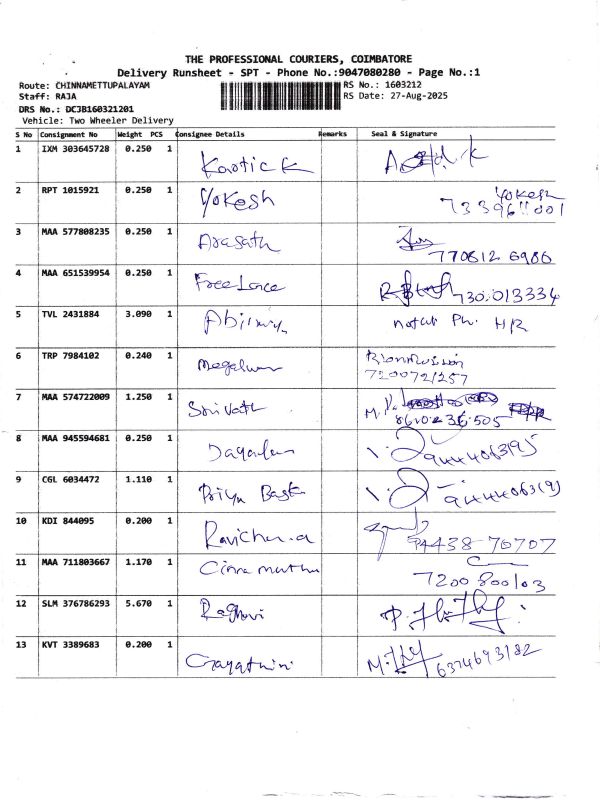 THE PROFESSIONAL COURIERS, COIMBATORE
Delivery Runsheet - SPT - Phone No.:9047080280 - Page No.:1
Route: CHINNAMETTUPALAYAM
RS No.: 1603212
Staff: RAJA
RS Date: 27-Aug-2025
DRS No.: DCJB160321201
Vehicle: Two Wheeler Delivery
S No Consignment No Weight PCS Consignee Details Remarks Seal & Signature
1 IXM 303645728 0.250 1 Kartick
2 RPT 1015921 0.250 1 Yokesh Yokesh
7339611001
3 MAA 577808235 0.250 1 Arasath
770812 6986
4 MAA 651539954 0.250 1 Freelance
5 TVL 2431884 3.090 1 Ph. H/R
6 TRP 7984102 0.240 1
7200721257
7 MAA 574722009 1.250 1 Srivath M.
8 MAA 945594681 0.250 1
9 CGL 6034472 1.110 1 Priya
10 KDI 844095 0.200 1
94438-70707
11 MAA 711803667 1.170 1
7200800103
12 SLM 376786293 5.670 1 Raghavi
13 KVT 3389683 0.200 1 Gayathiri 6374693182